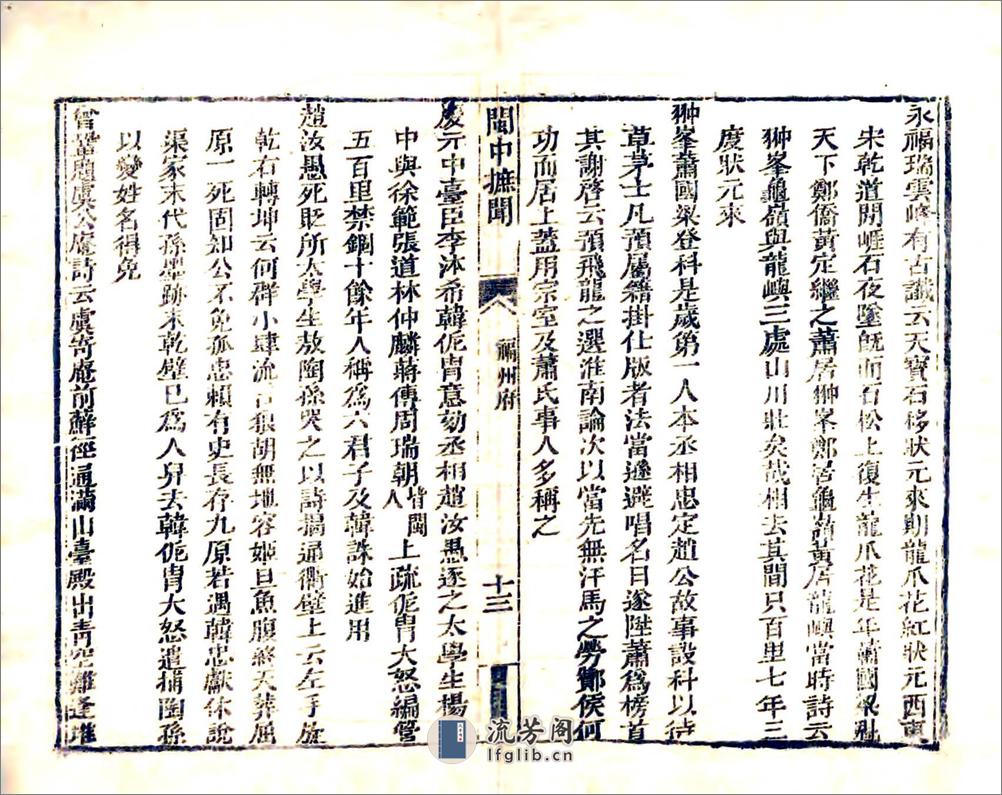 永福瑞雲峰有古讖云天寶石移狀元來期龍爪花紅狀元西東
宋乾道間崕石夜墜旣而石松上復生龍爪花是年蕭國梁魁
天下鄭僑黃定繼之蕭居狮峯鄭居龜嶺黃居龍嶼當時詩云
狮峯龜嶺與龍嶼三處山川壯矣哉相去其間只百里七年三
度狀元來
狮峯蕭國梁登科是歲第一人本丞相忠定趙公故事設科以待
草茅士凡預屬籍掛仕版者法當遜避唱名日遂陞蕭爲榜首
其謝啓云預飛龍之選淮南論次以當先無汗馬之勞酇侯何
功而居上蓋用宗室及蕭氏事人多稱之
閩中摭聞
卷八
福州府
十三
慶元中臺臣李沐希韓侂冑意劾丞相趙汝愚逐之太學生楊
中與徐範張道林仲麟蔣傳周瑞朝皆閩人上疏侂冑大怒編管
五百里禁錮十餘年人稱爲六君子及韓誅始進用
趙汝愚死貶所太學生敖陶孫哭之以詩揭通衢壁上云左手旋
乾右轉坤云何群小肆流言狼胡無地容姬旦魚腹終天葬屈
原一死固知公不免孤忠賴有史長存九原若遇韓忠獻休說
渠家末代孫墨跡未乾壁已爲人舁去韓侂冑大怒遣捕陶孫
以變姓名得免
曾鞏題虞公庵詩云虞寄庵前蘚徑通滿山臺殿出靑空難逢堆
流芳阁
lfglib.cn